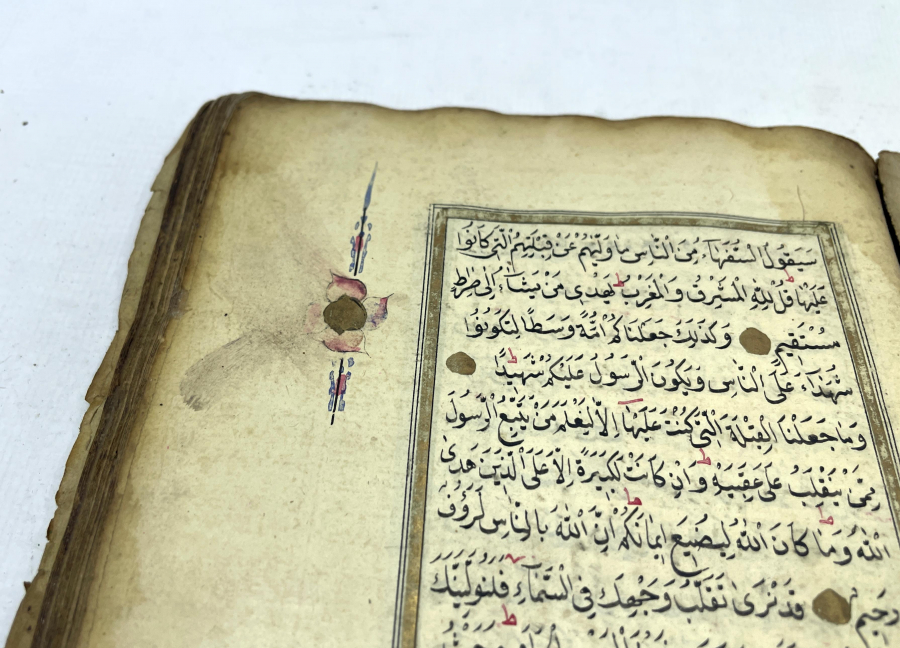 سَيَقُولُ السُّفَهَاءُ مِنَ النَّاسِ مَا وَلّٰيهُمْ عَنْ قِبْلَتِهِمُ الَّتِي كَانُوا
عَلَيْهَا قُلْ لِلّٰهِ الْمَشْرِقُ وَالْمَغْرِبُ ط يَهْدِي مَنْ يَشَاءُ اِلٰى صِرَاطٍ
مُسْتَقِيمٍ وَكَذٰلِكَ جَعَلْنَاكُمْ اُمَّةً وَسَطًا لِتَكُونُوا
شُهَدَاءَ عَلَى النَّاسِ وَيَكُونَ الرَّسُولُ عَلَيْكُمْ شَهِيدًا ط
وَمَا جَعَلْنَا الْقِبْلَةَ الَّتِي كُنْتَ عَلَيْهَا اِلَّا لِنَعْلَمَ مَنْ يَتَّبِعُ الرَّسُولَ
مِمَّنْ يَنْقَلِبُ عَلٰى عَقِبَيْهِ ط وَاِنْ كَانَتْ لَكَبِيرَةً اِلَّا عَلَى الَّذِينَ هَدَى
اللّٰهُ ط وَمَا كَانَ اللّٰهُ لِيُضِيعَ اِيمَانَكُمْ ط اِنَّ اللّٰهَ بِالنَّاسِ لَرَؤُفٌ
رَحِيمٌ قَدْ نَرٰى تَقَلُّبَ وَجْهِكَ فِي السَّمَاءِ فَلَنُوَلِّيَنَّكَ